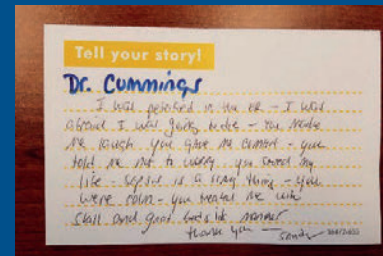 Tell your story!
Dr. Cummings
I was petrified in the ER - I was
afraid I was going to die - You made
me laugh you gave me comfort - you
told me not to worry. you saved my
life - sepsis is a scary thing - you
were calm - you treated me with
skill and great bedside manner
thank you -